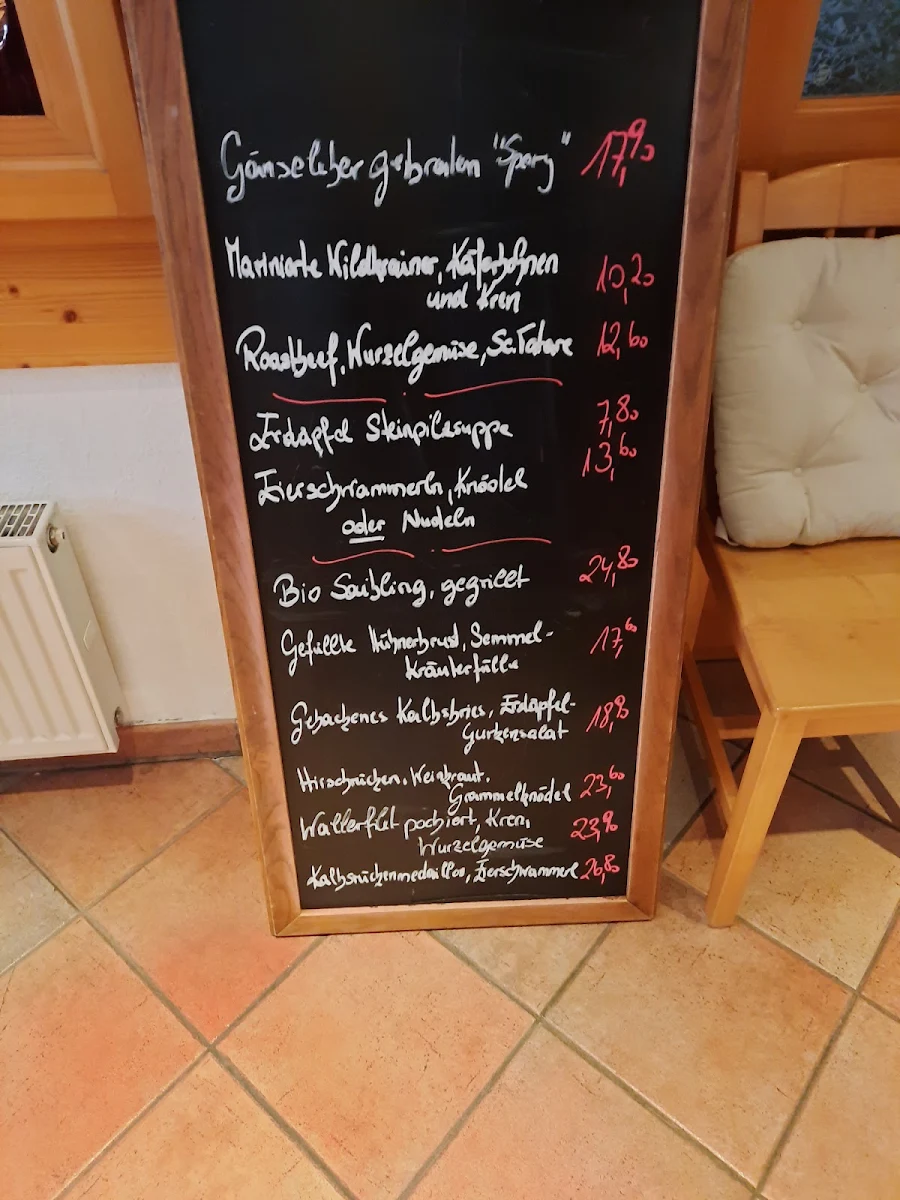 Gänseleber gebraten "Spezy" 17,90
Marinierte Wildkrainer, Käferbohnen 10,20
und Kren
Roastbeef, Wurzelgemüse, Sc. Tatare 12,60
Erdäpfel Steinpilzsuppe 7,80
Eierschwammerln, Knödel 13,60
oder Nudeln
Bio Saibling, gegrillt 24,80
Gefüllte Hühnerbrust, Semmel- 17,60
Kräuterfülle
Gebackenes Kalbsbries, Erdäpfel- 18,90
Gurkensalat
Hirschrücken, Weinkraut, 23,60
Grammelknödel
Wallerfilet pochiert, Kren, 23,90
Wurzelgemüse
Kalbsrückenmedaillon, Eierschwammerl 26,80